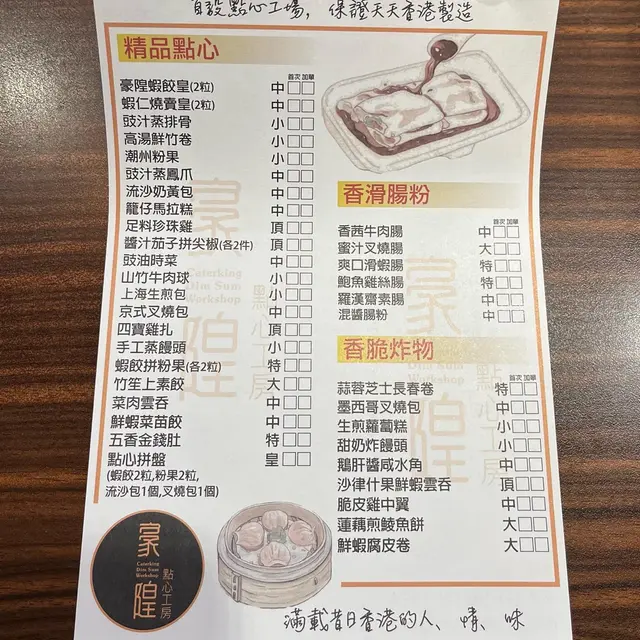 自設點心工場,保證天天香港製造
精品點心
首次 加單
豪隍蝦餃皇(2粒) 中□□
蝦仁燒賣皇(2粒) 中□□
豉汁蒸排骨 小□□
高湯鮮竹卷 小□□
潮州粉果 小□□
豉汁蒸鳳爪 中□□
流沙奶黃包 中□□
籠仔馬拉糕 中□□
足料珍珠雞 頂□□
醬汁茄子拼尖椒(各2件) 頂□□
豉油時菜 中□□
山竹牛肉球 小□□
上海生煎包 小□□
京式叉燒包 中□□
四寶雞扎 頂□□
手工蒸饅頭 小□□
蝦餃拼粉果(各2粒) 特□□
竹笙上素餃 大□□
菜肉雲吞 中□□
鮮蝦菜苗餃 中□□
五香金錢肚 特□□
點心拼盤 皇□□
(蝦餃2粒,粉果2粒,
流沙包1個,叉燒包1個)
香滑腸粉
首次 加單
香茜牛肉腸 中□□
蜜汁叉燒腸 大□□
爽口滑蝦腸 特□□
鮑魚雞絲腸 特□□
羅漢齋素腸 中□□
混醬腸粉 中□□
香脆炸物
首次 加單
蒜蓉芝士長春卷 特□□
墨西哥叉燒包 中□□
生煎蘿蔔糕 小□□
甜奶炸饅頭 小□□
鵝肝醬咸水角 中□□
沙律什果鮮蝦雲吞 頂□□
脆皮雞中翼 中□□
蓮藕煎鯪魚餅 大□□
鮮蝦腐皮卷 大□□
豪隍
Caterking
Dim Sum
Workshop
點心工房
豪隍
Caterking
Dim Sum
Workshop
點心工房
豪隍
Caterking
Dim Sum
Workshop
點心工房
滿載昔日香港的人、情、味